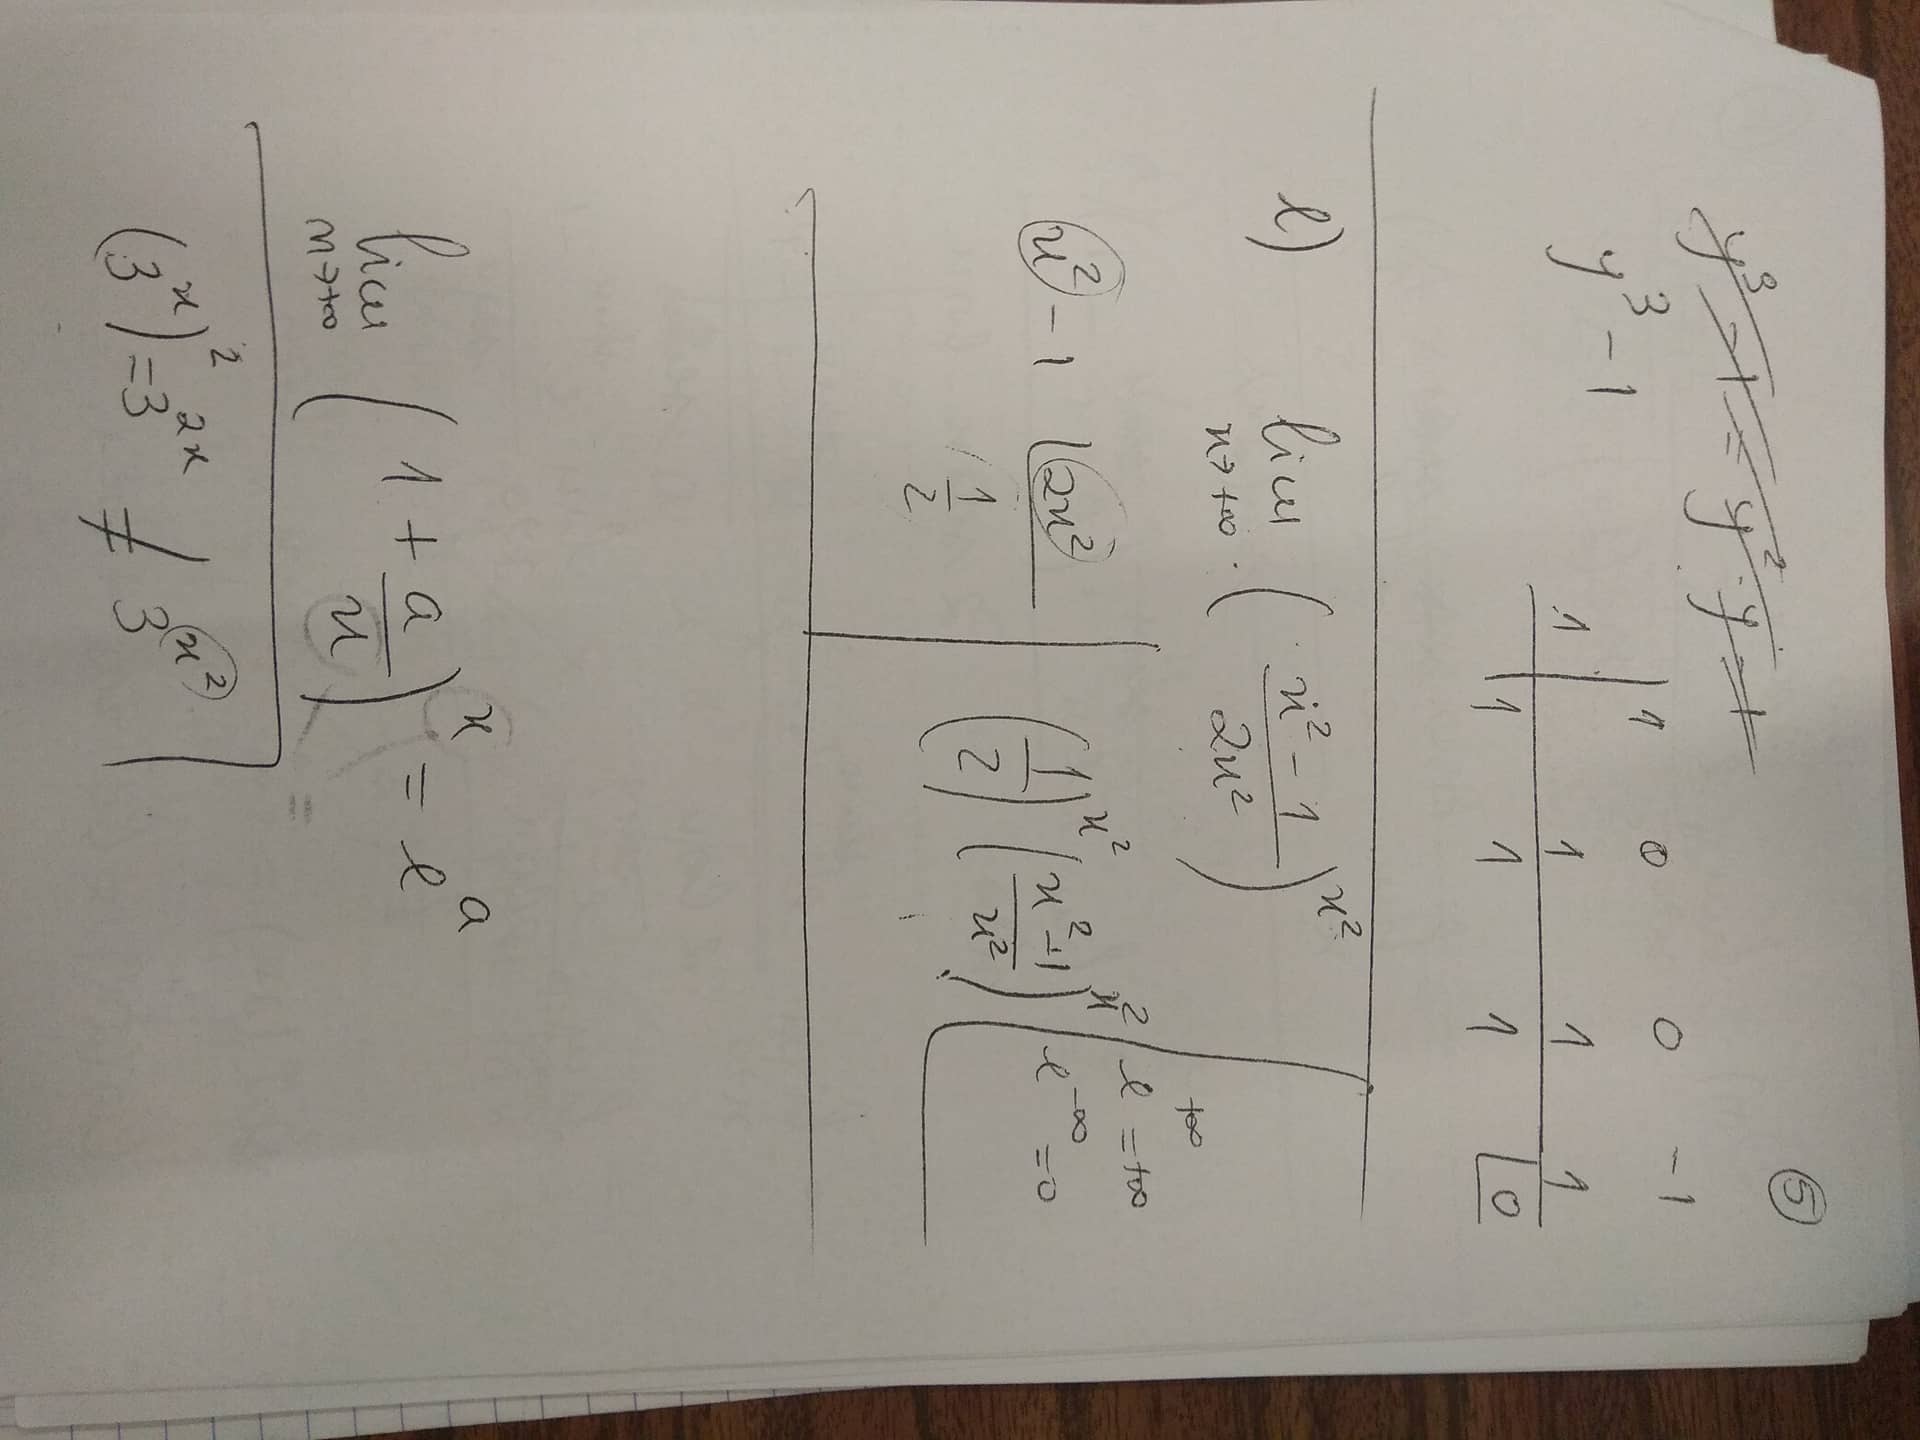 ⑤
y³ - 1 = y² · y - 1
y³ - 1
1 0 0 -1
1 | 1 1 1
1 1 1 |0
l) lim x→+∞ ( (x² - 1) / (2x²) )^(x²)
x² - 1 | 2x²
1/2
(1/2)^(x²) ( (x² - 1) / x² )^(x²)
e^(+∞) = +∞
e^(-∞) = 0
lim x→+∞ ( 1 + a/x )^x = e^a
(3^x)² = 3^(2x) ≠ 3^(x²)